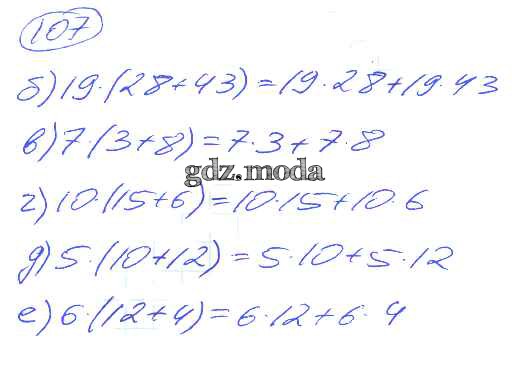 107
б) 19·(28+43)=19·28+19·43
в) 7·(3+8)=7·3+7·8
gdz.moda
г) 10·(15+6)=10·15+10·6
д) 5·(10+12)=5·10+5·12
е) 6·(12+4)=6·12+6·4